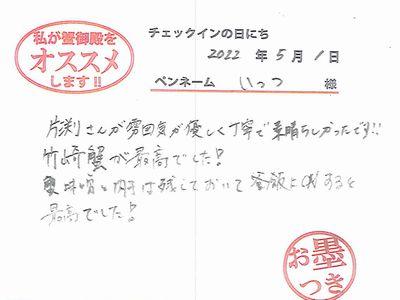 私が蟹御殿を
オススメ
します!!
チェックインの日にち
2022 年 5 月 1 日
ペンネーム いっつ 様
片渕さんが雰囲気が優しく丁寧で素晴らしかったです!!
竹崎蟹が最高でした!
味噌と内子は残しておいて釜飯とMixすると
最高でした!
お墨
つき